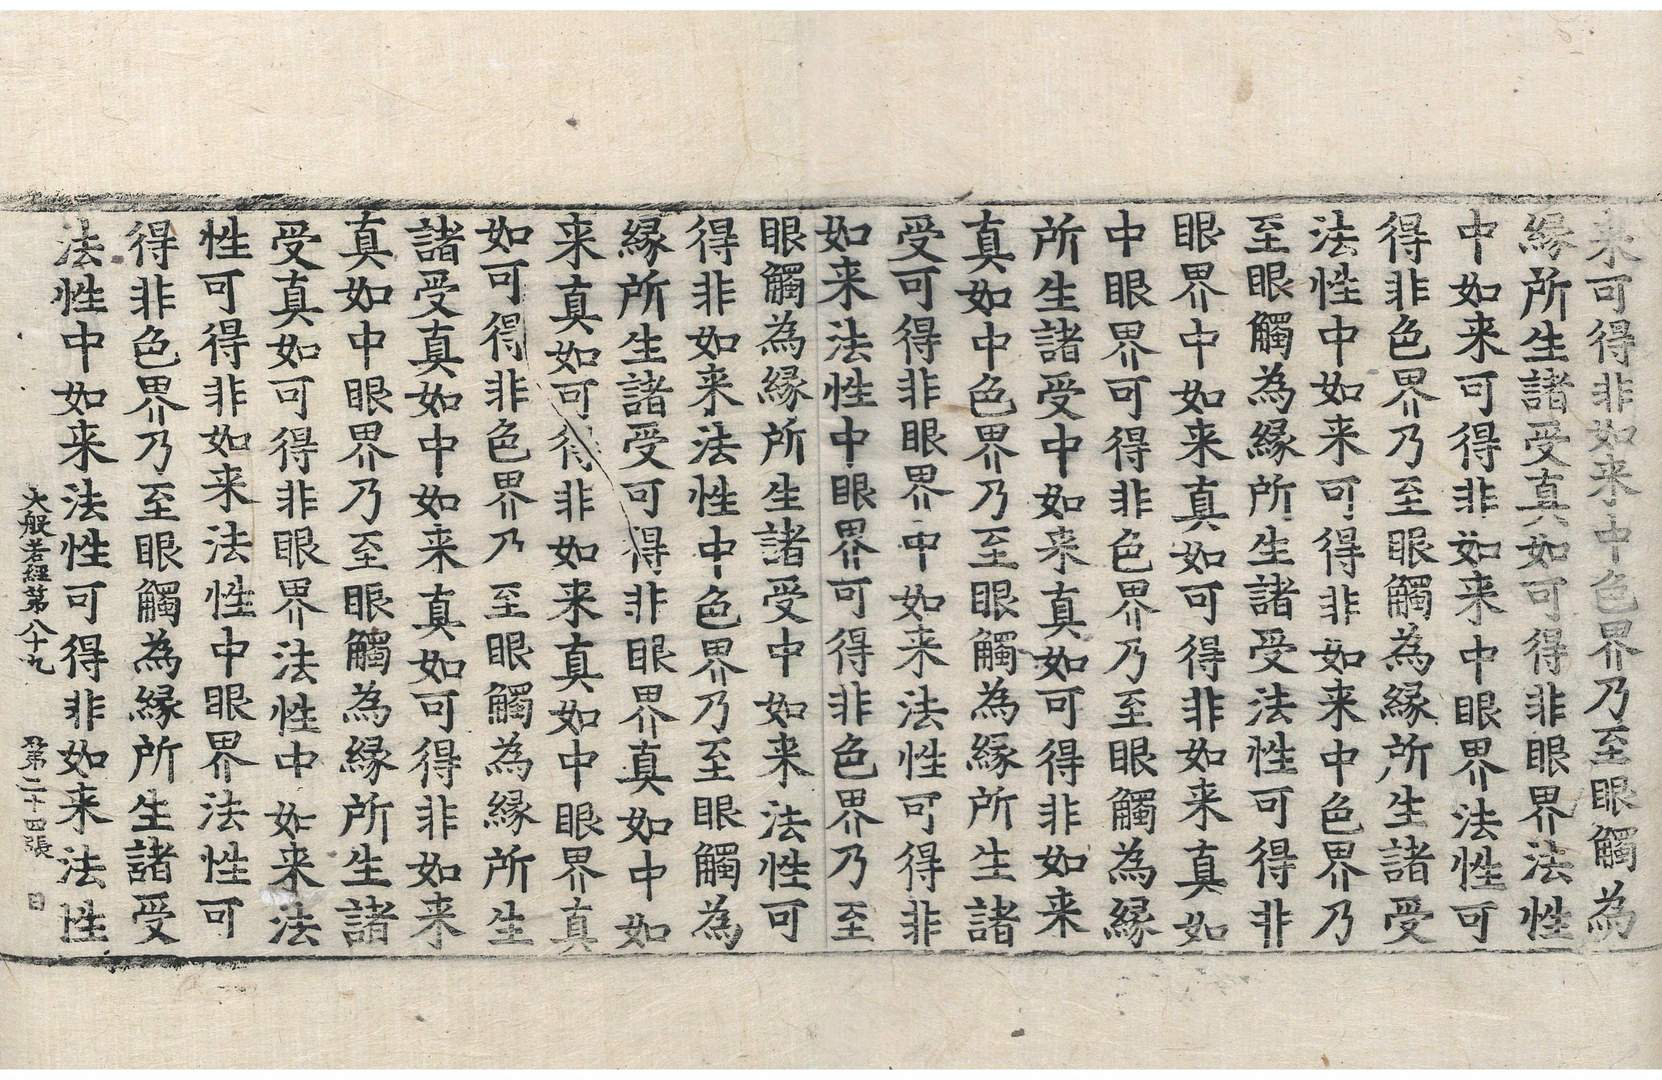 来可得非如来中色界乃至眼觸為
縁所生諸受真如可得非眼界法性
中如来可得非如来中眼界法性可
得非色界乃至眼觸為縁所生諸受
法性中如来可得非如来中色界乃
至眼觸為縁所生諸受法性可得非
眼界中如来真如可得非如来真如
中眼界可得非色界乃至眼觸為縁
所生諸受中如来真如可得非如来
真如中色界乃至眼觸為縁所生諸
受可得非眼界中如来法性可得非
如来法性中眼界可得非色界乃至
眼觸為縁所生諸受中如来法性可
得非如来法性中色界乃至眼觸為
縁所生諸受可得非眼界真如中如
来真如可得非如来真如中眼界真
如可得非色界乃至眼觸為縁所生
諸受真如中如来真如可得非如来
真如中眼界乃至眼觸為縁所生諸
受真如可得非眼界法性中如来法
性可得非如来法性中眼界法性可
得非色界乃至眼觸為縁所生諸受
法性中如来法性可得非如来法性
大般若經第八十九 第二十四張 日